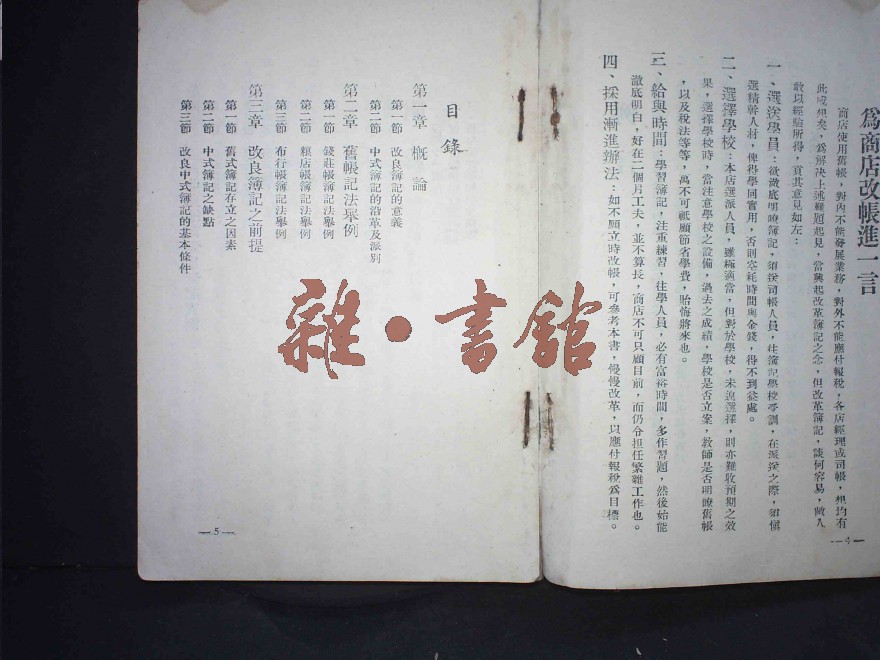 為商店改帳進一言
商店使用舊帳，對內不能發展業務，對外不能應付報稅，各店經理或司帳，想均有
此感想矣，為解決上述難題起見，當興起改革簿記之念，但改革簿記，談何容易，敝人
敢以經驗所得，貢其意見如左：
一、選送學員：欲澈底明瞭簿記，須送司帳人員，往簿記學校受訓，在派送之際，須慎
選精幹人材，俾得學同實用，否則空耗時間與金錢，得不到益處。
二、選擇學校：本店選派人員，雖極適當，但對於學校，未遑選擇，則亦難收預期之效
果，選擇學校時，當注意學校之設備，過去之成績，學校是否立案，教師是否明瞭舊帳
，以及稅法等等，萬不可祇顧節省學費，貽悔將來也。
三、給與時間：學習簿記，注重練習，往學人員，必有富裕時間，多作習題，然後始能
澈底明白，好在二個月工夫，並不算長，商店不可只顧目前，而仍令担任繁雜工作也。
四、採用漸進辦法：如不願立時改帳，可參考本書，慢慢改革，以應付報稅為目標。
—4—
目錄
第一章 概論
第一節 改良簿記的意義
第二節 中式簿記的沿革及派別
第二章 舊帳記法舉例
第一節 錢莊帳簿記法舉例
第二節 糧店帳簿記法舉例
第三節 布行帳簿記法舉例
第三章 改良簿記之前提
第一節 舊式簿記存立之因素
第二節 中式簿記之缺點
第三節 改良中式簿記的基本條件
—5—
雜·書館